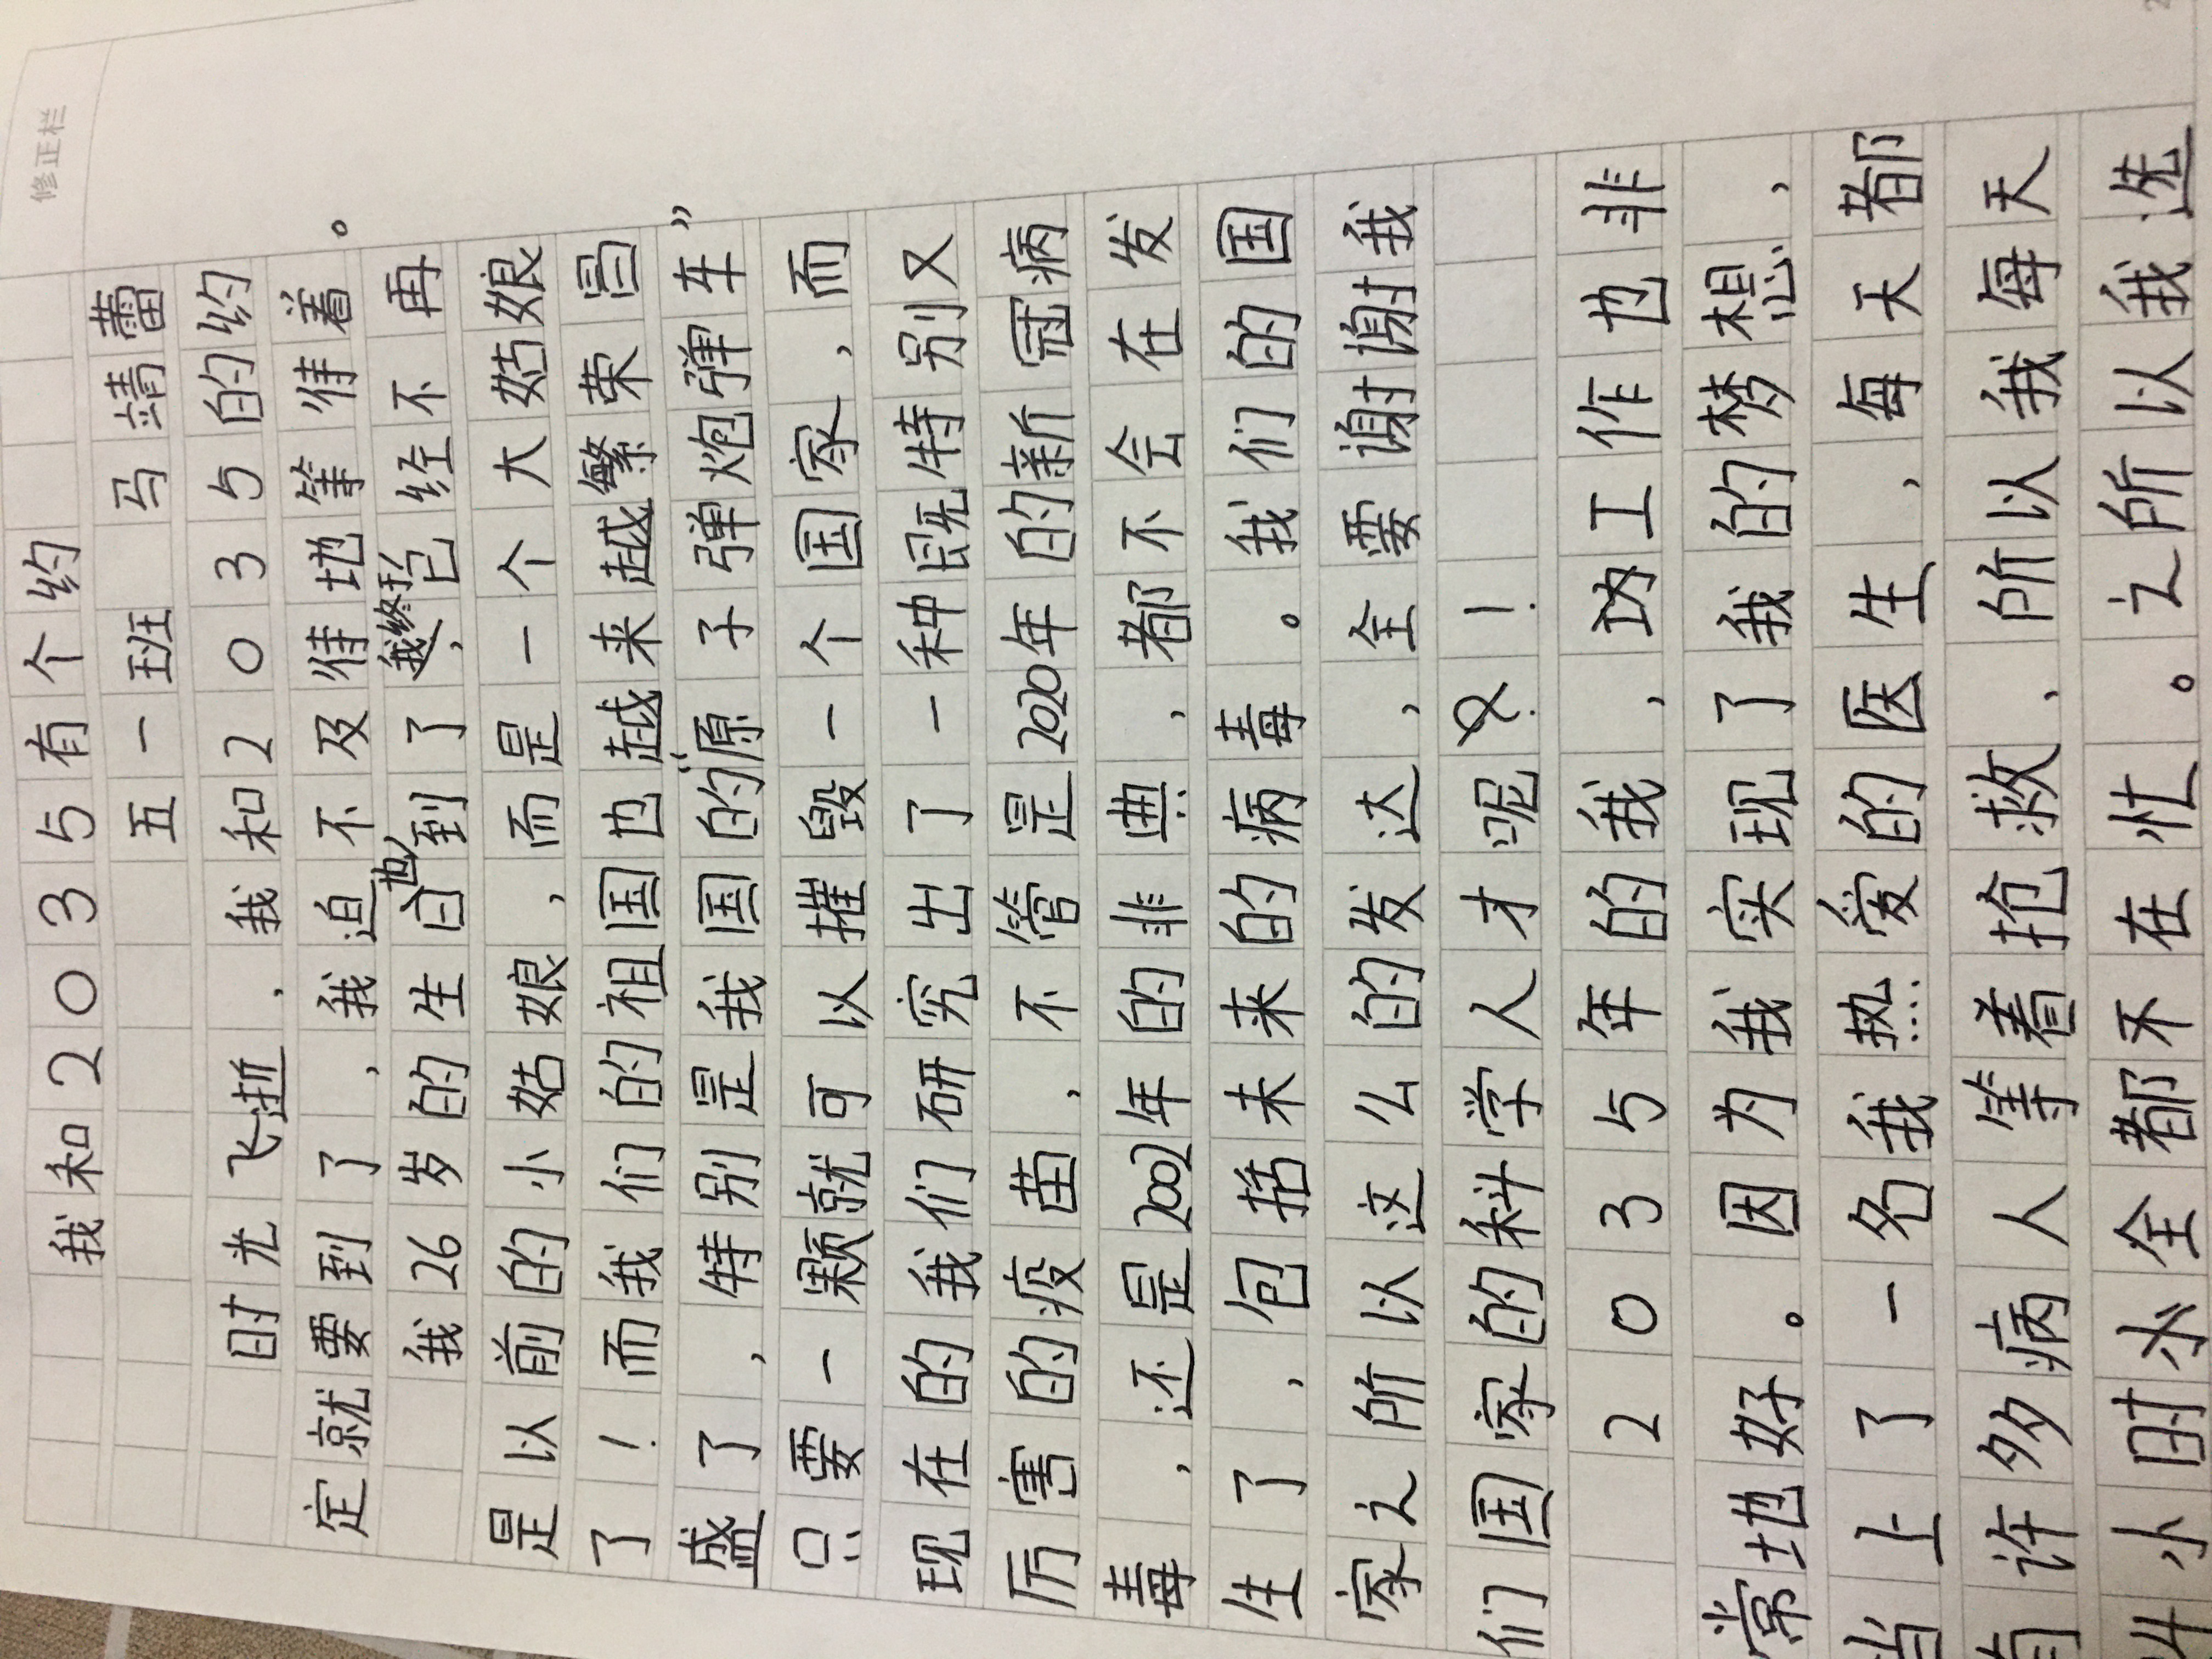 修正栏
我和2035有个约
五一班 马靖蕾
时光飞逝，我和2035的约
定就要到了，我迫不及待地等待着。
我26岁的生日也到了，我终于已经不再
是以前的小姑娘，而是一个大姑娘
了！而我们的祖国也越来越繁荣昌
盛了，特别是我国的“原子弹炮弹车”
只要一颗就可以摧毁一个国家，而
现在的我们研究出了一种既特别又
厉害的疫苗，不管是2020年的新冠病
毒，还是2002年的非典，都不会在发
生了，包括未来的病毒。我们的国
家之所以这么的发达，全要谢谢我
们国家的科学人才呢！
2035年的我，工作也非
常地好。因为我实现了我的梦想，
当上了一名我热爱的医生，每天都
有许多病人等着抢救，所以我每天
24小时全都在忙。之所以我选